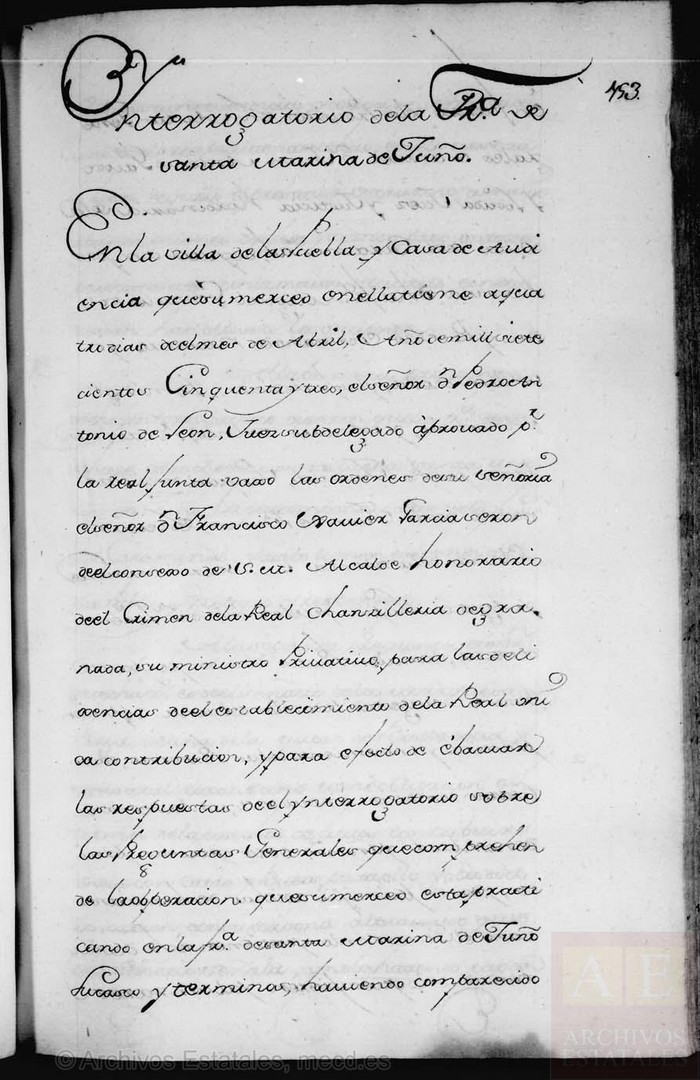 453.
Ynterrogatorio de la Fra. de
santa Marina de Tuño.
En la villa de la Puella, y Casa de Audi
encia que su merced en ella tiene a qua
tro dias de el mes de Abril, Año de mill siete
cientos Cinquenta y tres, el señor Dn. Pedro An
tonio de Leon, Juez subdelegado aprouado pr.
la real Junta vaxo las ordenes de su señoria
el señor Dn. Francisco Xauier Garcia seron
de el consexo de S. M. Alcalde honorario
de el Crimen de la Real Chanzilleria de gra
nada, su ministro Priuatiuo, para las deli
xencias de el establecimiento de la Real vni
ca contribucion, y para efecto de ebacuar
las respuestas de el ynterrogatorio sobre
las Preguntas Generales que comprehen
de la operacion que su merced esta practi
cando en la fra. de santa Marina de Tuño
su casco y terminos, hauiendo comparecido
© Archivos Estatales, mecd.es
AE
ARCHIVOS
ESTATALES